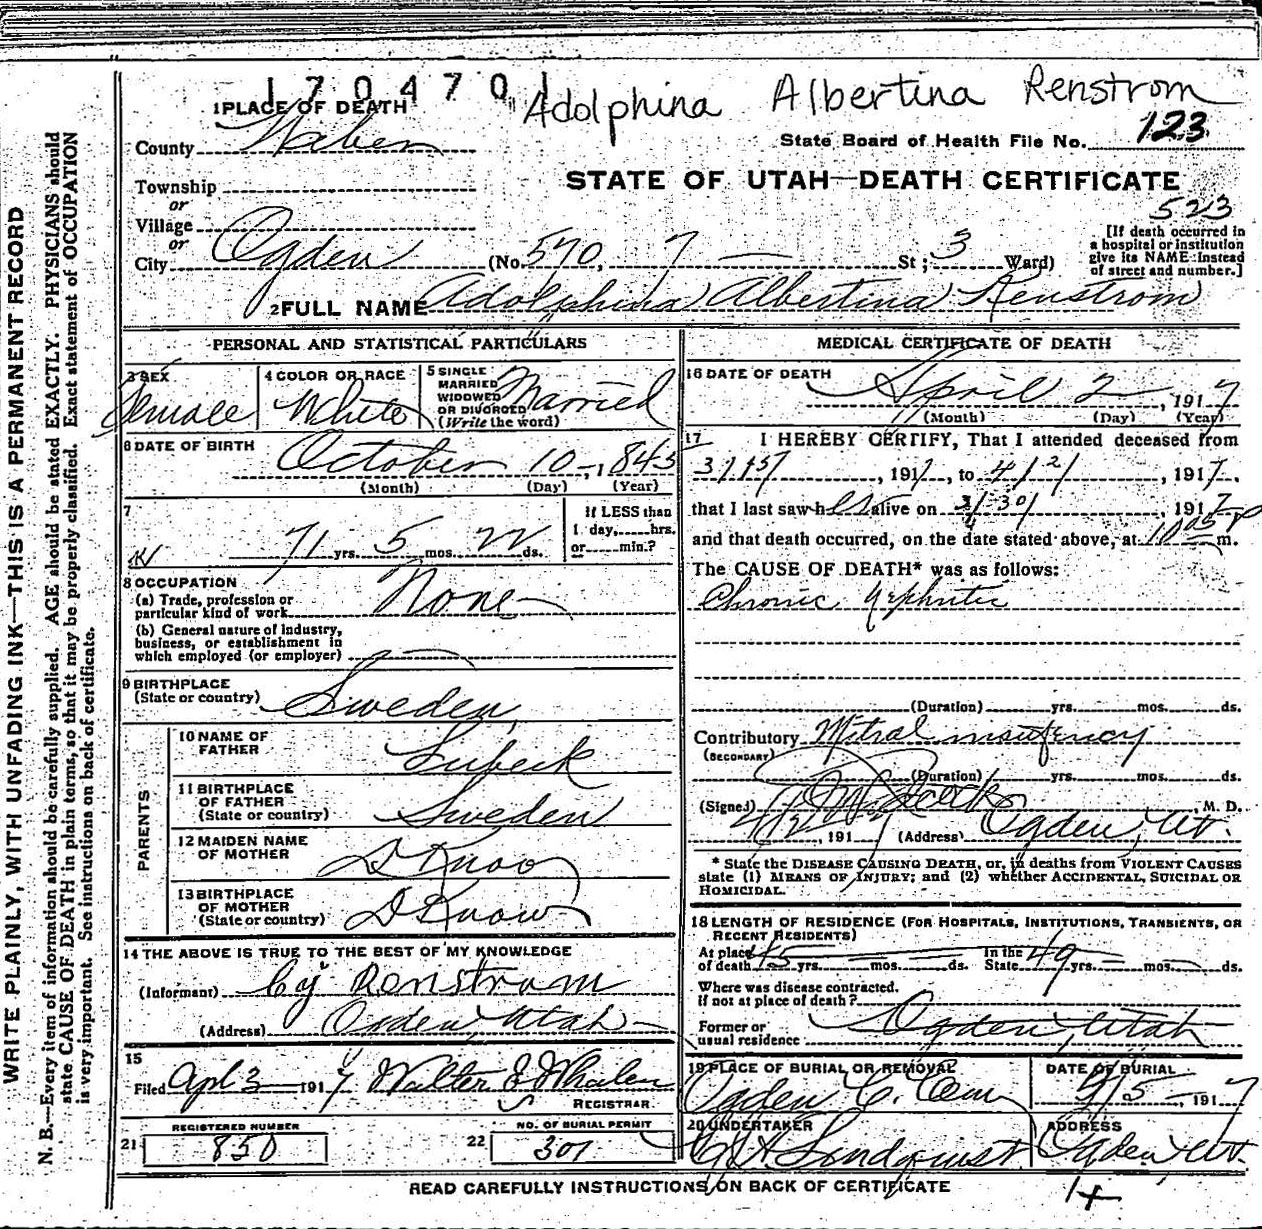 170470
Adolphina Albertina Renstrom
1 PLACE OF DEATH
State Board of Health File No. 123
County Weber
STATE OF UTAH—DEATH CERTIFICATE
Township
or
Village
or
City Ogden (No. 570, 7 — St; 3 Ward)
523
[If death occurred in
a hospital or institution
give its NAME instead
of street and number.]
2 FULL NAME Adolphina Albertina Renstrom
PERSONAL AND STATISTICAL PARTICULARS
3 SEX
Female
4 COLOR OR RACE
White
5 SINGLE
MARRIED
WIDOWED
OR DIVORCED
(Write the word)
Married
6 DATE OF BIRTH
October 10 -, 1845
(Month) (Day) (Year)
7
71 yrs. 5 mos. 22 ds.
If LESS than
1 day, hrs.
or min.?
8 OCCUPATION
(a) Trade, profession or
particular kind of work None
(b) General nature of industry,
business, or establishment in
which employed (or employer)
9 BIRTHPLACE
(State or country) Sweden
PARENTS
10 NAME OF
FATHER Lubeck
11 BIRTHPLACE
OF FATHER
(State or country) Sweden
12 MAIDEN NAME
OF MOTHER D Know
13 BIRTHPLACE
OF MOTHER
(State or country) D Know
14 THE ABOVE IS TRUE TO THE BEST OF MY KNOWLEDGE
(Informant) Renstrom
(Address) Ogden, Utah
15
Filed Apl 3 1917 Walter J Whalen
REGISTRAR.
21 REGISTERED NUMBER
850
22 NO. OF BURIAL PERMIT
301
MEDICAL CERTIFICATE OF DEATH
16 DATE OF DEATH
April 2, 1917
(Month) (Day) (Year)
17 I HEREBY CERTIFY, That I attended deceased from
, 1917, to 4/2/, 1917.
that I last saw h er alive on 3/30/, 1917
and that death occurred, on the date stated above, at 10 05 P m.
The CAUSE OF DEATH* was as follows:
Chronic Nephritis
(Duration) yrs. mos. ds.
Contributory Mitral insufency
(SECONDARY)
(Duration) yrs. mos. ds.
(Signed) , M. D.
4/2, 1917 (Address) Ogden, Ut.
* State the DISEASE CAUSING DEATH, or, in deaths from VIOLENT CAUSES
state (1) MEANS OF INJURY; and (2) whether ACCIDENTAL, SUICIDAL OR
HOMICIDAL.
18 LENGTH OF RESIDENCE (FOR HOSPITALS, INSTITUTIONS, TRANSIENTS, OR
RECENT RESIDENTS)
At place
of death 45 yrs. mos. ds. In the
State 49 yrs. mos. ds.
Where was disease contracted.
If not at place of death?
Former or
usual residence Ogden, Utah
19 PLACE OF BURIAL OR REMOVAL
Ogden C. Cem
DATE OF BURIAL
4/5, 1917
20 UNDERTAKER
Lindquist
ADDRESS
Ogden, Ut.
READ CAREFULLY INSTRUCTIONS ON BACK OF CERTIFICATE
WRITE PLAINLY, WITH UNFADING INK—THIS IS A PERMANENT RECORD
N. B.—Every item of information should be carefully supplied. AGE should be stated EXACTLY. PHYSICIANS should
state CAUSE OF DEATH in plain terms, so that it may be properly classified. Exact statement of OCCUPATION
is very important. See instructions on back of certificate.